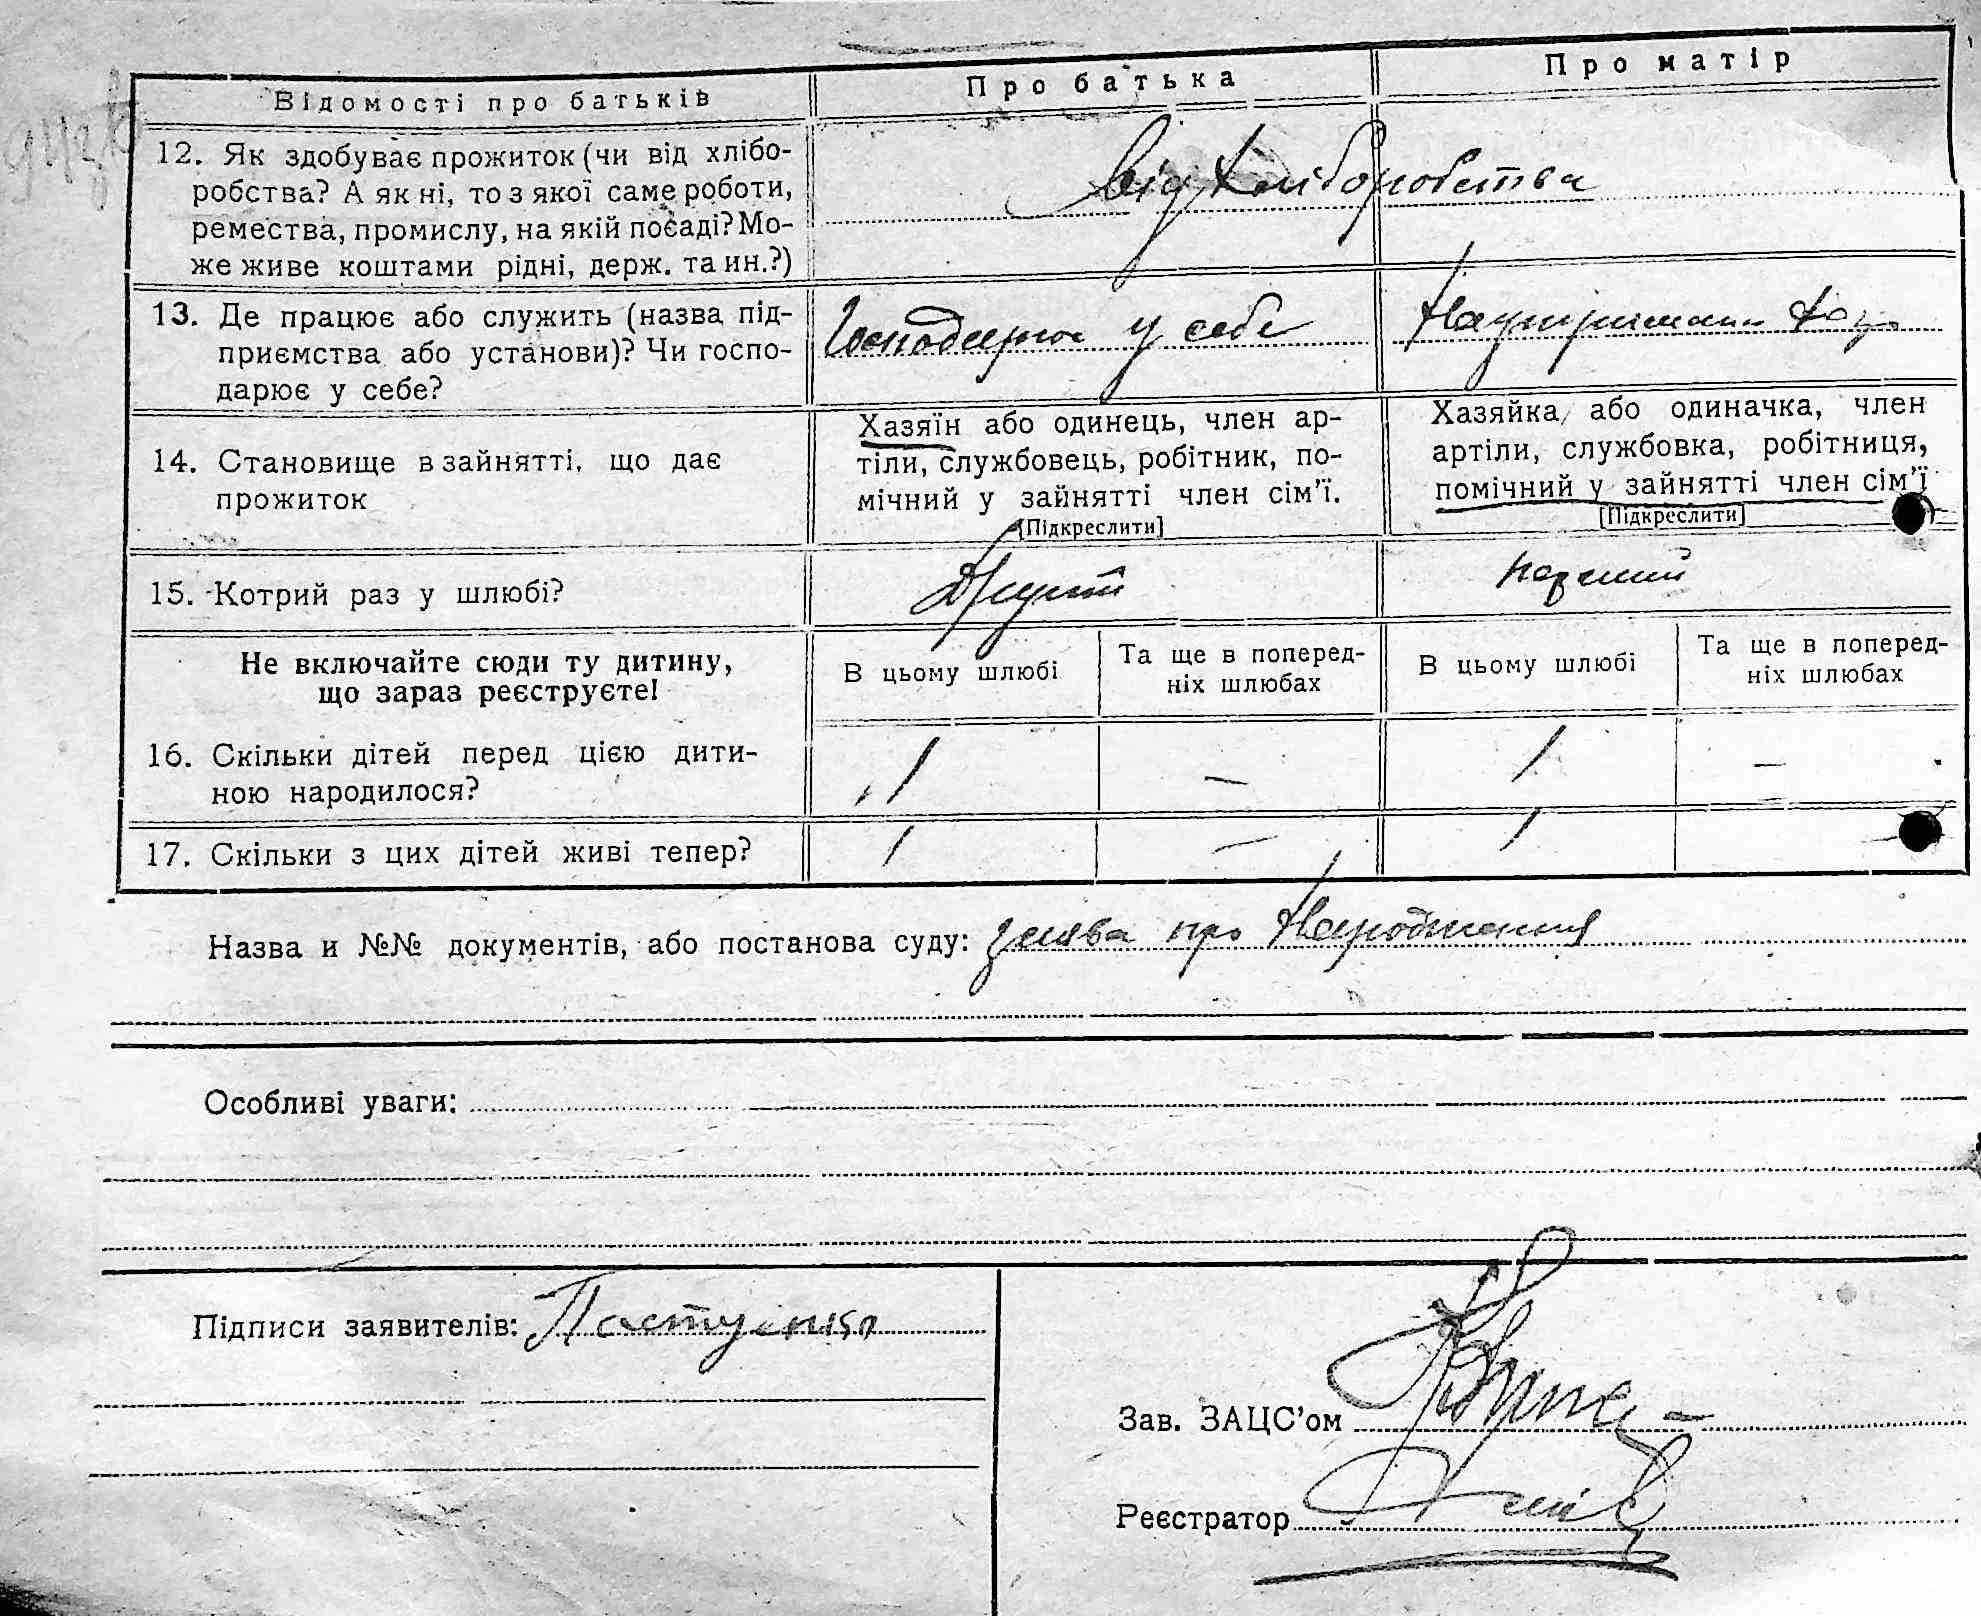 Відомості про батьків
Про батька
Про матір
12. Як здобуває прожиток (чи від хлібо-
робства? А як ні, то з якої саме роботи,
ремества, промислу, на якій посаді? Мо-
же живе коштами рідні, держ. та ин.?)
Від хліборобства
13. Де працює або служить (назва під-
приємства або установи)? Чи госпо-
дарює у себе?
Господарює у себе
На утриманні
14. Становище в зайнятті, що дає
прожиток
Хазяїн або одинець, член ар-
тіли, службовець, робітник, по-
мічний у зайнятті член сім'ї.
[Підкреслити]
Хазяйка або одиначка, член
артіли, службовка, робітниця,
помічний у зайнятті член сім'ї
[Підкреслити]
15. Котрий раз у шлюбі?
Другий
перший
Не включайте сюди ту дитину,
що зараз реєструєте!
В цьому шлюбі
Та ще в поперед-
ніх шлюбах
В цьому шлюбі
Та ще в поперед-
ніх шлюбах
16. Скільки дітей перед цією дити-
ною народилося?
1 — 1 —
17. Скільки з цих дітей живі тепер?
1 — 1
Назва и №№ документів, або постанова суду: заява про народження
Особливі уваги:
Підписи заявителів:
Зав. ЗАЦС'ом
Реєстратор